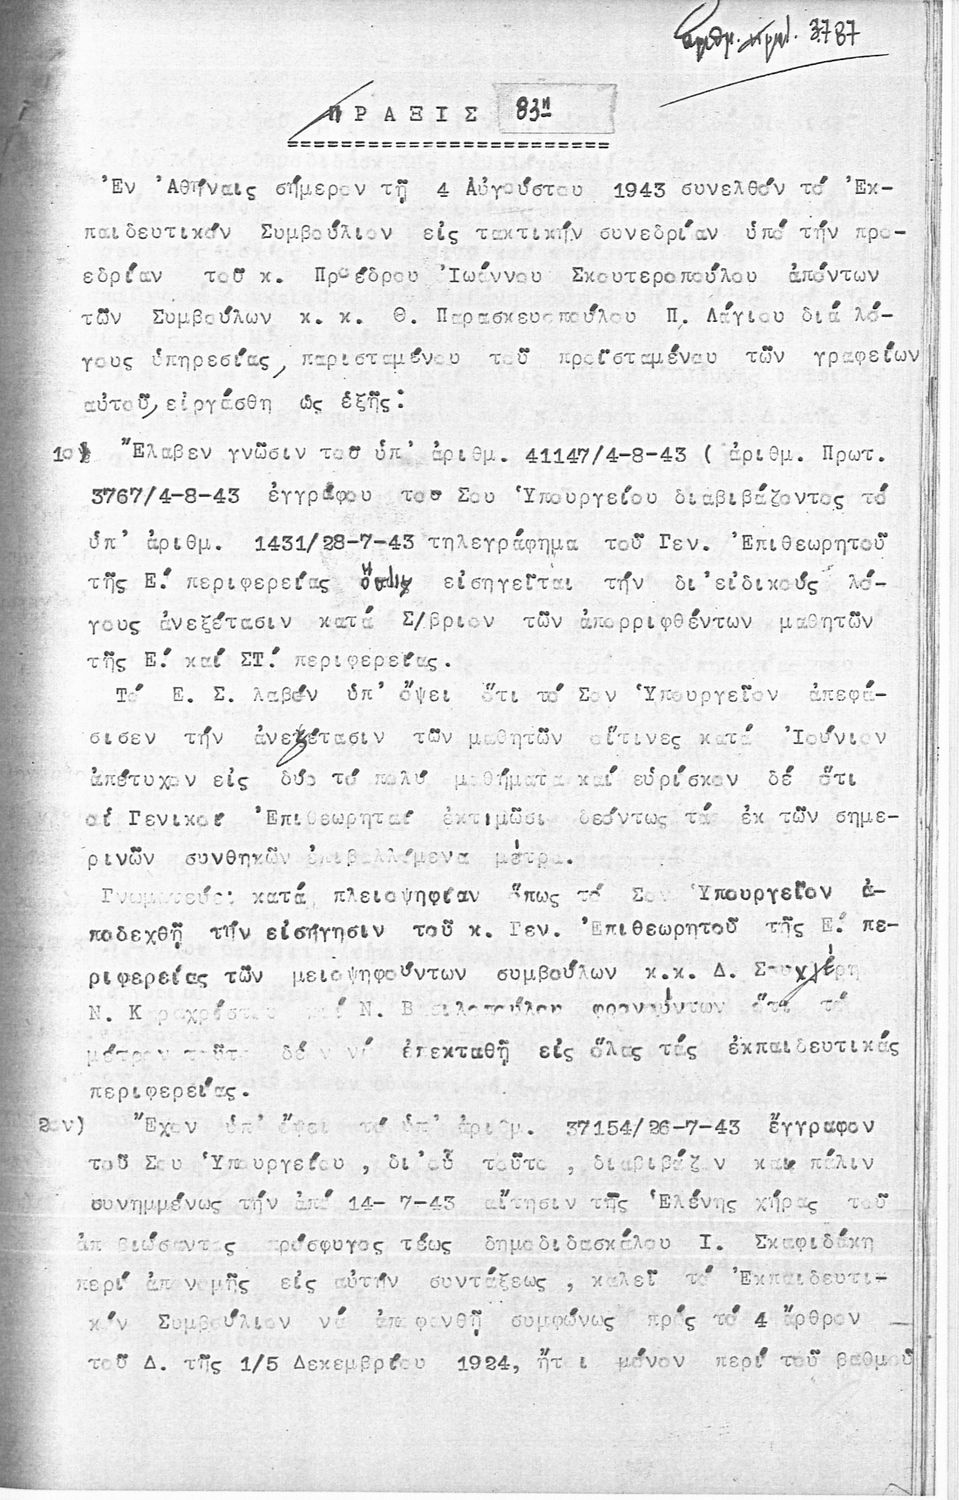 ἀριθμ. πρωτ. 3787
ΠΡΑΞΙΣ 83η
Ἐν Ἀθήναις σήμερον τῇ 4 Αὐγούστου 1943 συνελθόν τό Ἐκ-
παιδευτικόν Συμβούλιον εἰς τακτικήν συνεδρίαν ὑπό τήν προ-
εδρίαν τοῦ κ. Προέδρου Ἰωάννου Σκουτεροπούλου ἀπόντων
τῶν Συμβούλων κ. κ. Θ. Παρασκευοπούλου Π. Λάγιου διά λό-
γους ὑπηρεσίας, παρισταμένου τοῦ προϊσταμένου τῶν γραφείων
αὐτοῦ, εἰργάσθη ὡς ἑξῆς:
1ο) Ἔλαβεν γνῶσιν τοῦ ὑπ' ἀριθμ. 41147/4-8-43 ( ἀριθμ. Πρωτ.
3767/4-8-43 ἐγγράφου τοῦ Σου Ὑπουργείου διαβιβάζοντος τό
ὑπ' ἀριθμ. 1431/28-7-43 τηλεγράφημα τοῦ Γεν. Ἐπιθεωρητοῦ
τῆς Ε.' περιφερείας εἰσηγεῖται τήν δι'εἰδικούς λό-
γους ἀνεξέτασιν κατά Σ/βριον τῶν ἀπορριφθέντων μαθητῶν
τῆς Ε.' καί ΣΤ.' περιφερείας.
Τό Ε. Σ. λαβόν ὑπ' ὄψει ὅτι τό Σον Ὑπουργεῖον ἀπεφά-
σισεν τήν ἀνεξέτασιν τῶν μαθητῶν οἵτινες κατά Ἰούνιον
ἀπέτυχον εἰς δύο τό πολύ μαθήματα καί εὑρίσκον δέ ὅτι
οἱ Γενικοί Ἐπιθεωρηταί ἐκτιμῶσι δεόντως τά ἐκ τῶν σημε-
ρινῶν συνθηκῶν ἐπιβαλλόμενα μέτρα.
Γνωματεύει κατά πλειοψηφίαν ὅπως τό Σον Ὑπουργεῖον ἀ-
ποδεχθῇ τήν εἰσήγησιν τοῦ κ. Γεν. Ἐπιθεωρητοῦ τῆς Ε.' πε-
ριφερείας τῶν μειοψηφούντων συμβούλων κ.κ. Δ.
Ν. καί Ν. Βασιλοπούλου φρονούντων ὅτι τό
μέτρον τοῦτο δέον νά ἐπεκταθῇ εἰς ὅλας τάς ἐκπαιδευτικάς
περιφερείας.
2ον) Ἔχον ὑπ' ὄψει τό ὑπ' ἀριθμ. 37154/26-7-43 ἔγγραφον
τοῦ Σου Ὑπουργείου , δι'οὗ τοῦτο , διαβιβάζον καί πάλιν
συνημμένως τήν ἀπό 14- 7-43 αἴτησιν τῆς Ἑλένης χήρας τοῦ
ἀποβιώσαντος πρόσφυγος τέως δημοδιδασκάλου Ι. Σκαφιδάκη
περί ἀπονομῆς εἰς αὐτήν συντάξεως , καλεῖ τό Ἐκπαιδευτι-
κόν Συμβούλιον νά ἀποφανθῇ συμφώνως πρός τό 4 ἄρθρον
τοῦ Δ. τῆς 1/5 Δεκεμβρίου 1924, ἤτοι μόνον περί τοῦ βαθμοῦ